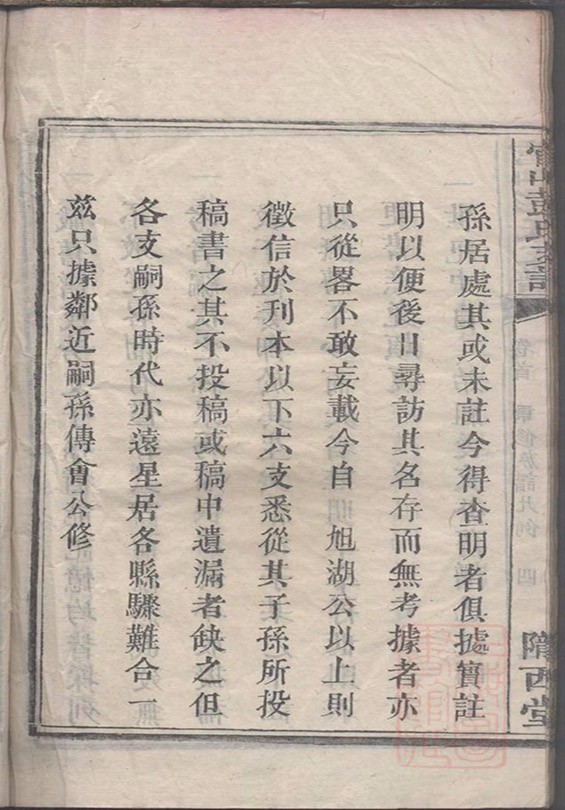 彭氏支譜
卷首 重修族譜凡例 四
隴西堂
孫居處其或未註今得查明者俱據實註
明以便後日尋訪其名存而無考據者亦
只從畧不敢妄載今自 旭湖公以上則
徵信於刊本以下六支悉從其子孫所投
稿書之其不投稿或稿中遺漏者缺之但
各支嗣孫時代亦遠星居各縣驟難合一
茲只據鄰近嗣孫傳會公修